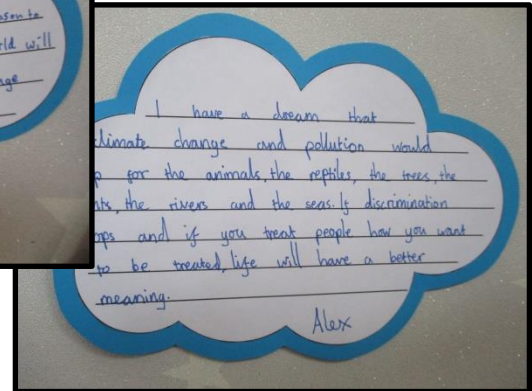 ason to
ld will
nge
I have a dream that
climate change and pollution would
p for the animals, the reptiles, the trees, the
nts, the rivers and the seas. If discrimination
ps and if you treat people how you want
to be treated, life will have a better
meaning.
Alex